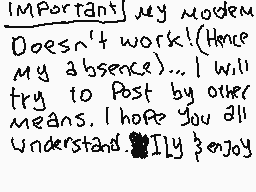 IMPORTANT| My Modem
Doesn't work! (Hence
my absence)... I will
try to Post by other
means. I hope you all
understand. Ily & enjoy